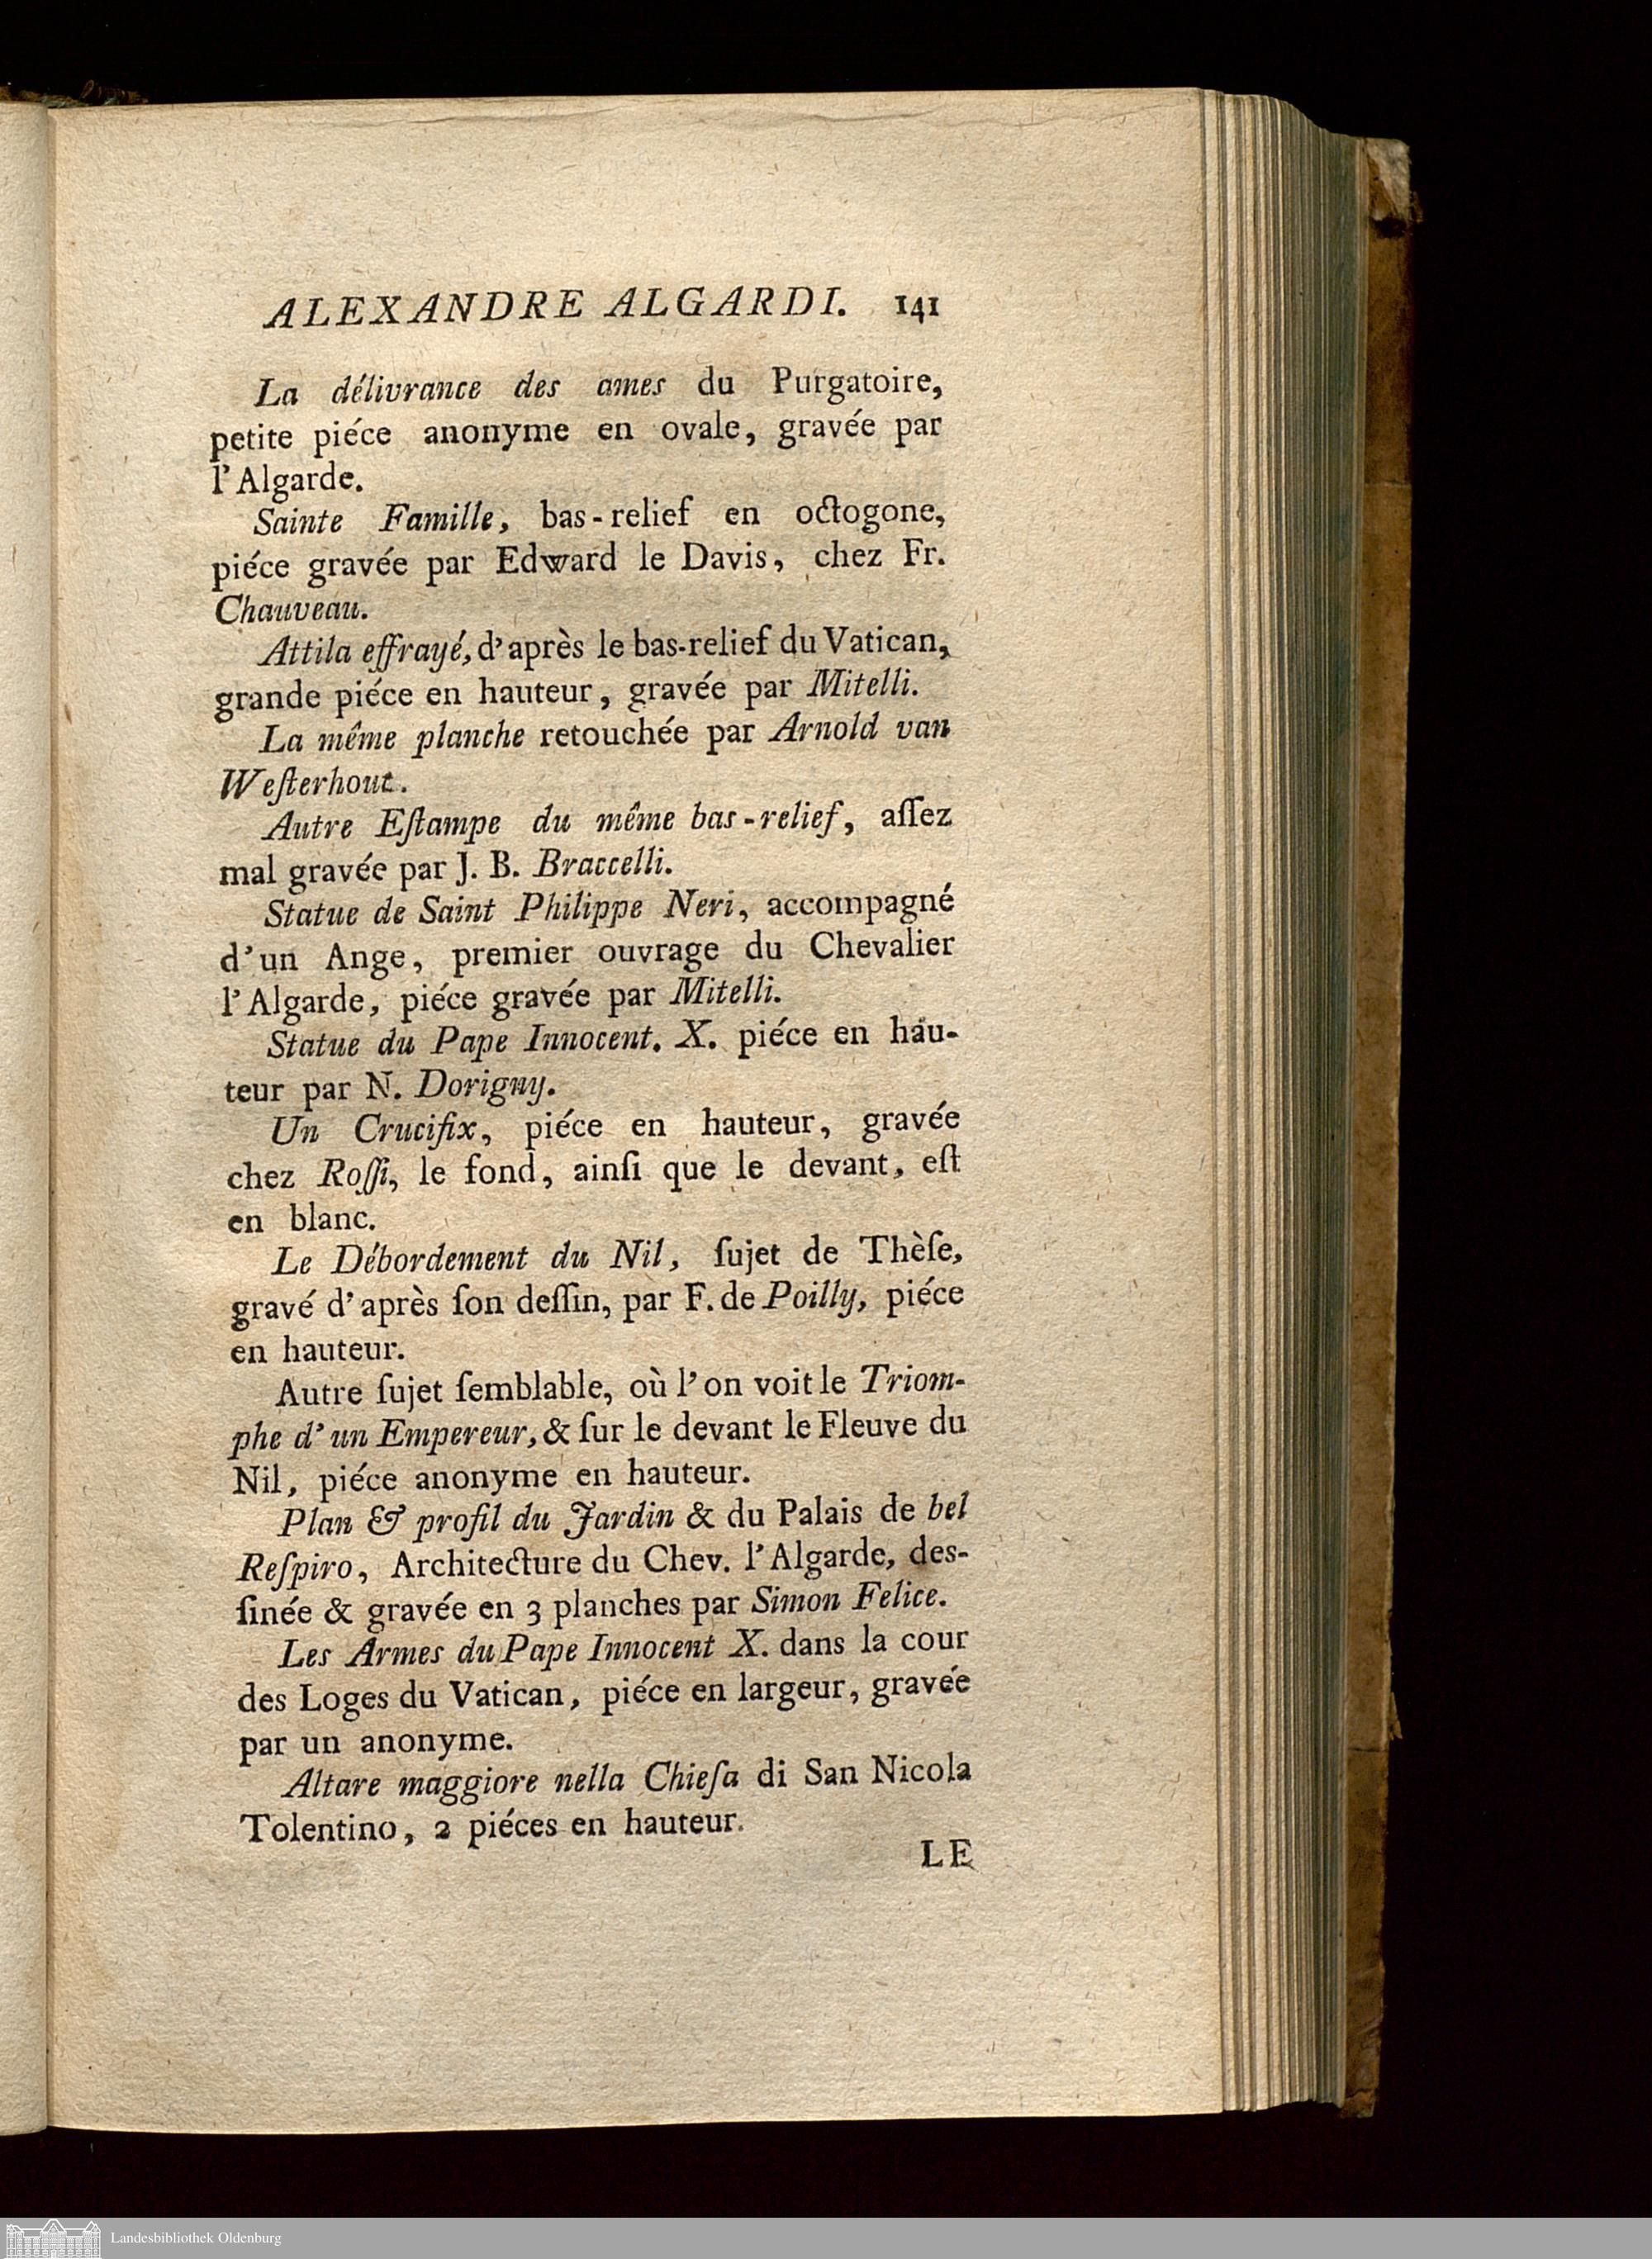 ALEXANDRE ALGARDI. 141
La délivrance des ames du Purgatoire,
petite piéce anonyme en ovale, gravée par
l'Algarde.
Sainte Famille, bas-relief en octogone,
piéce gravée par Edward le Davis, chez Fr.
Chauveau.
Attila effrayé, d'après le bas-relief du Vatican,
grande piéce en hauteur, gravée par Mitelli.
La même planche retouchée par Arnold van
Weſterhout.
Autre Eſtampe du même bas-relief, aſſez
mal gravée par J. B. Braccelli.
Statue de Saint Philippe Neri, accompagné
d'un Ange, premier ouvrage du Chevalier
l'Algarde, piéce gravée par Mitelli.
Statue du Pape Innocent. X. piéce en hau-
teur par N. Dorigny.
Un Crucifix, piéce en hauteur, gravée
chez Roſſi, le fond, ainſi que le devant, eſt
en blanc.
Le Débordement du Nil, ſujet de Thèſe,
gravé d'après ſon deſſin, par F. de Poilly, piéce
en hauteur.
Autre ſujet ſemblable, où l'on voit le Triom-
phe d'un Empereur, & ſur le devant le Fleuve du
Nil, piéce anonyme en hauteur.
Plan & profil du Jardin & du Palais de bel
Reſpiro, Architecture du Chev. l'Algarde, des-
ſinée & gravée en 3 planches par Simon Felice.
Les Armes du Pape Innocent X. dans la cour
des Loges du Vatican, piéce en largeur, gravée
par un anonyme.
Altare maggiore nella Chieſa di San Nicola
Tolentino, 2 piéces en hauteur.
LE
Landesbibliothek Oldenburg